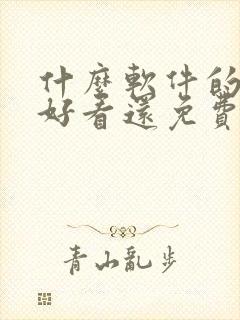 什麼軟件的
好看還免費
青山亂步